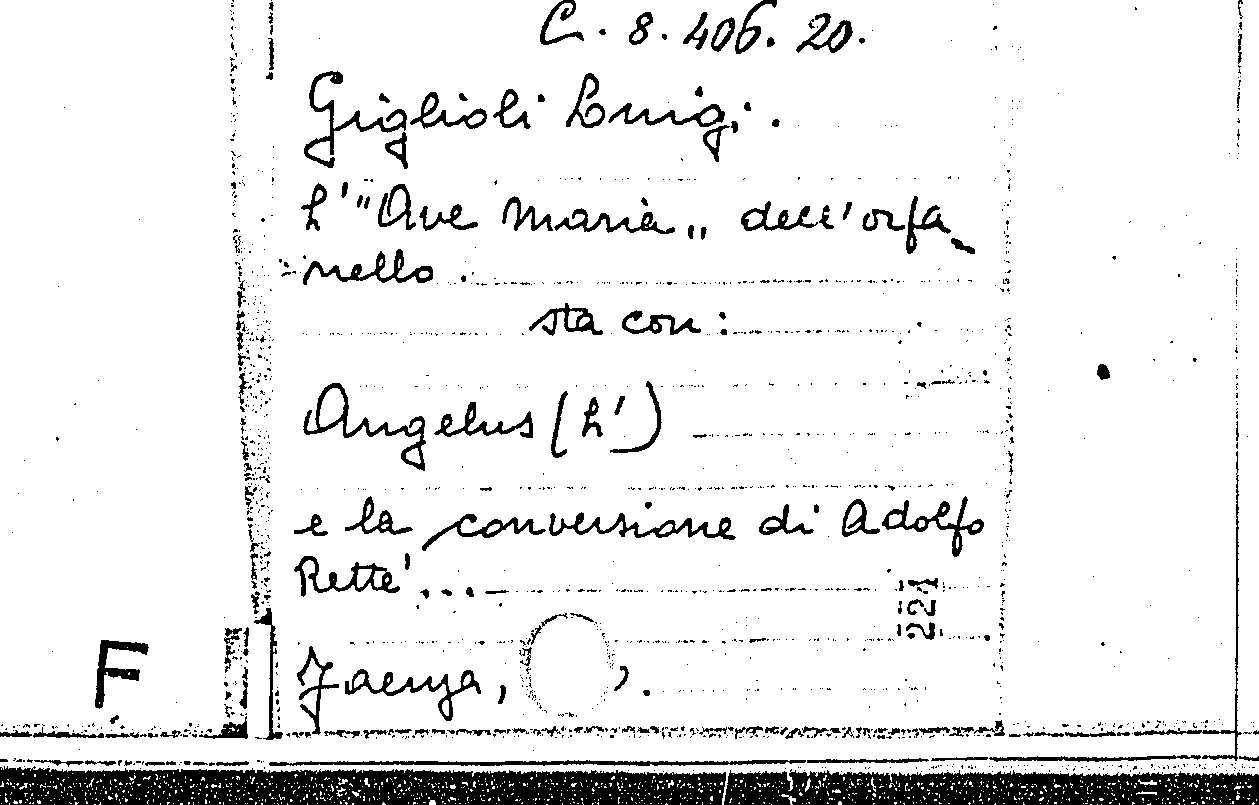 C. 8. 406. 20.
Giglioli Luigi.
L' "Ave Maria„ dell'orfa-
nello.
sta con:
Angelus (L')
e la conversione di Adolfo
Retté...
221
F
Faenza, ).